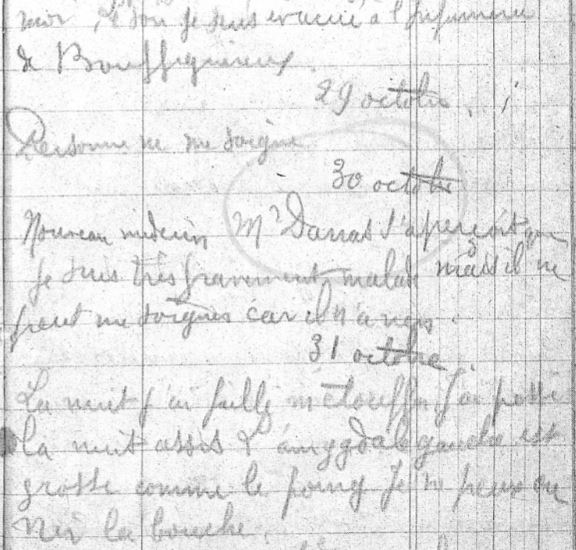 moi, le soir je suis évacué à l'infirmerie
de Bouffignereux
29 octobre
Personne ne me soigne
30 octobre
Nouveau médecin Mr Darras s'aperçoit que
je suis très gravement malade mais il ne
peut me soigner car il n'a rien.
31 octobre
La nuit j'ai failli m'étouffer j'ai passé
la nuit assis L'amygdale gauche est
grosse comme le poing Je ne peux ou
vrir la bouche.